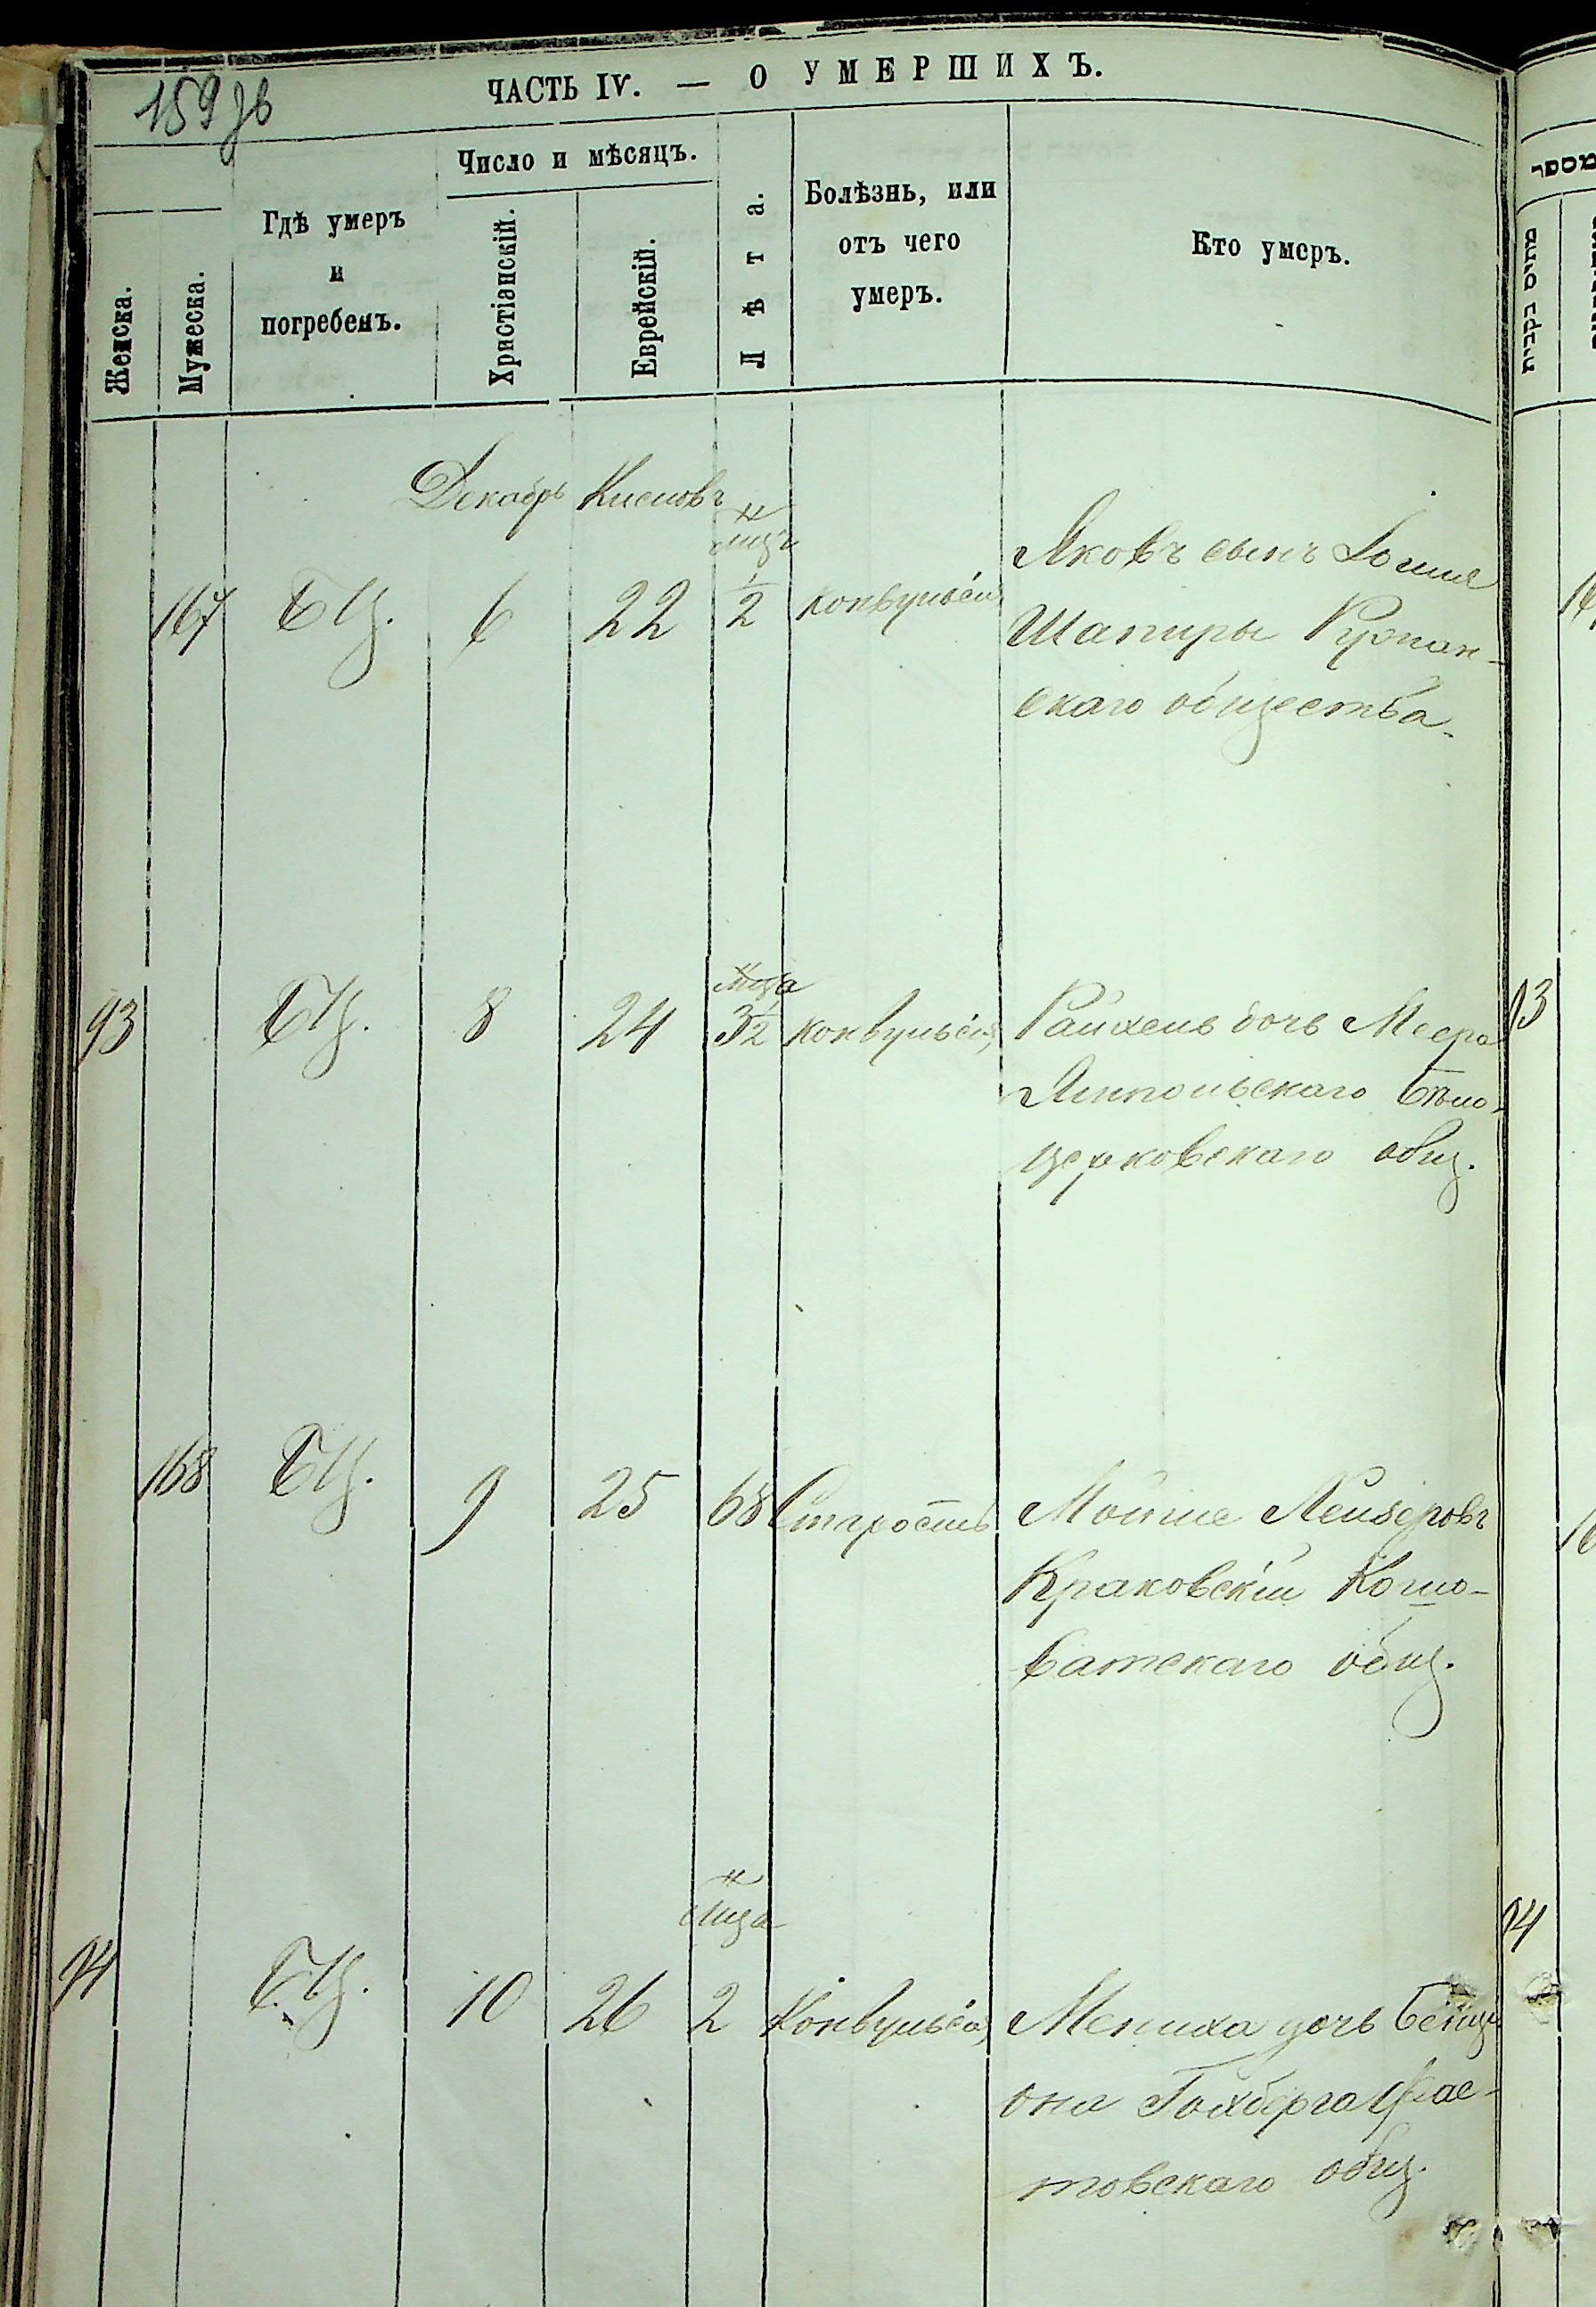 159 зв
ЧАСТЬ IV. — О УМЕРШИХЪ.
Женска.
Мужеска.
Гдѣ умеръ
и
погребенъ.
Число и мѣсяцъ.
Христіанскій.
Еврейскій.
Лѣта.
Болѣзнь, или
отъ чего
умеръ.
Кто умеръ.
מספר
Декабрь Кислевъ
167 БЦ. 6 22 ½ конвульсія Яковъ сынъ
Шапиры
скаго общества.
93 БЦ. 8 24 мца 3½ конвульсія Райхель дочь Меера
Ямпольскаго Бѣло-
церковскаго общ.
168 БЦ. 9 25 68 Старость Мойше Лейзеровъ
Краковскій Кошо-
ватскаго общ.
94 БЦ. 10 26 мца 2 Конвульсія Мениха дочь Бенци
она Гохберга Фас-
товскаго общ.
93
94